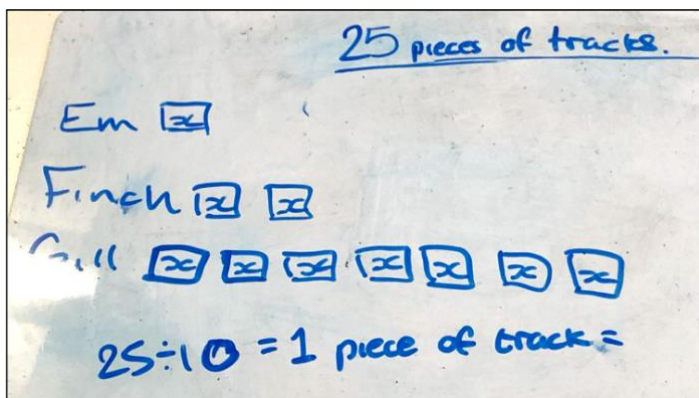 25 pieces of tracks.
Em x
Finch x x
Gill x x x x x x x
25÷10 = 1 piece of track =